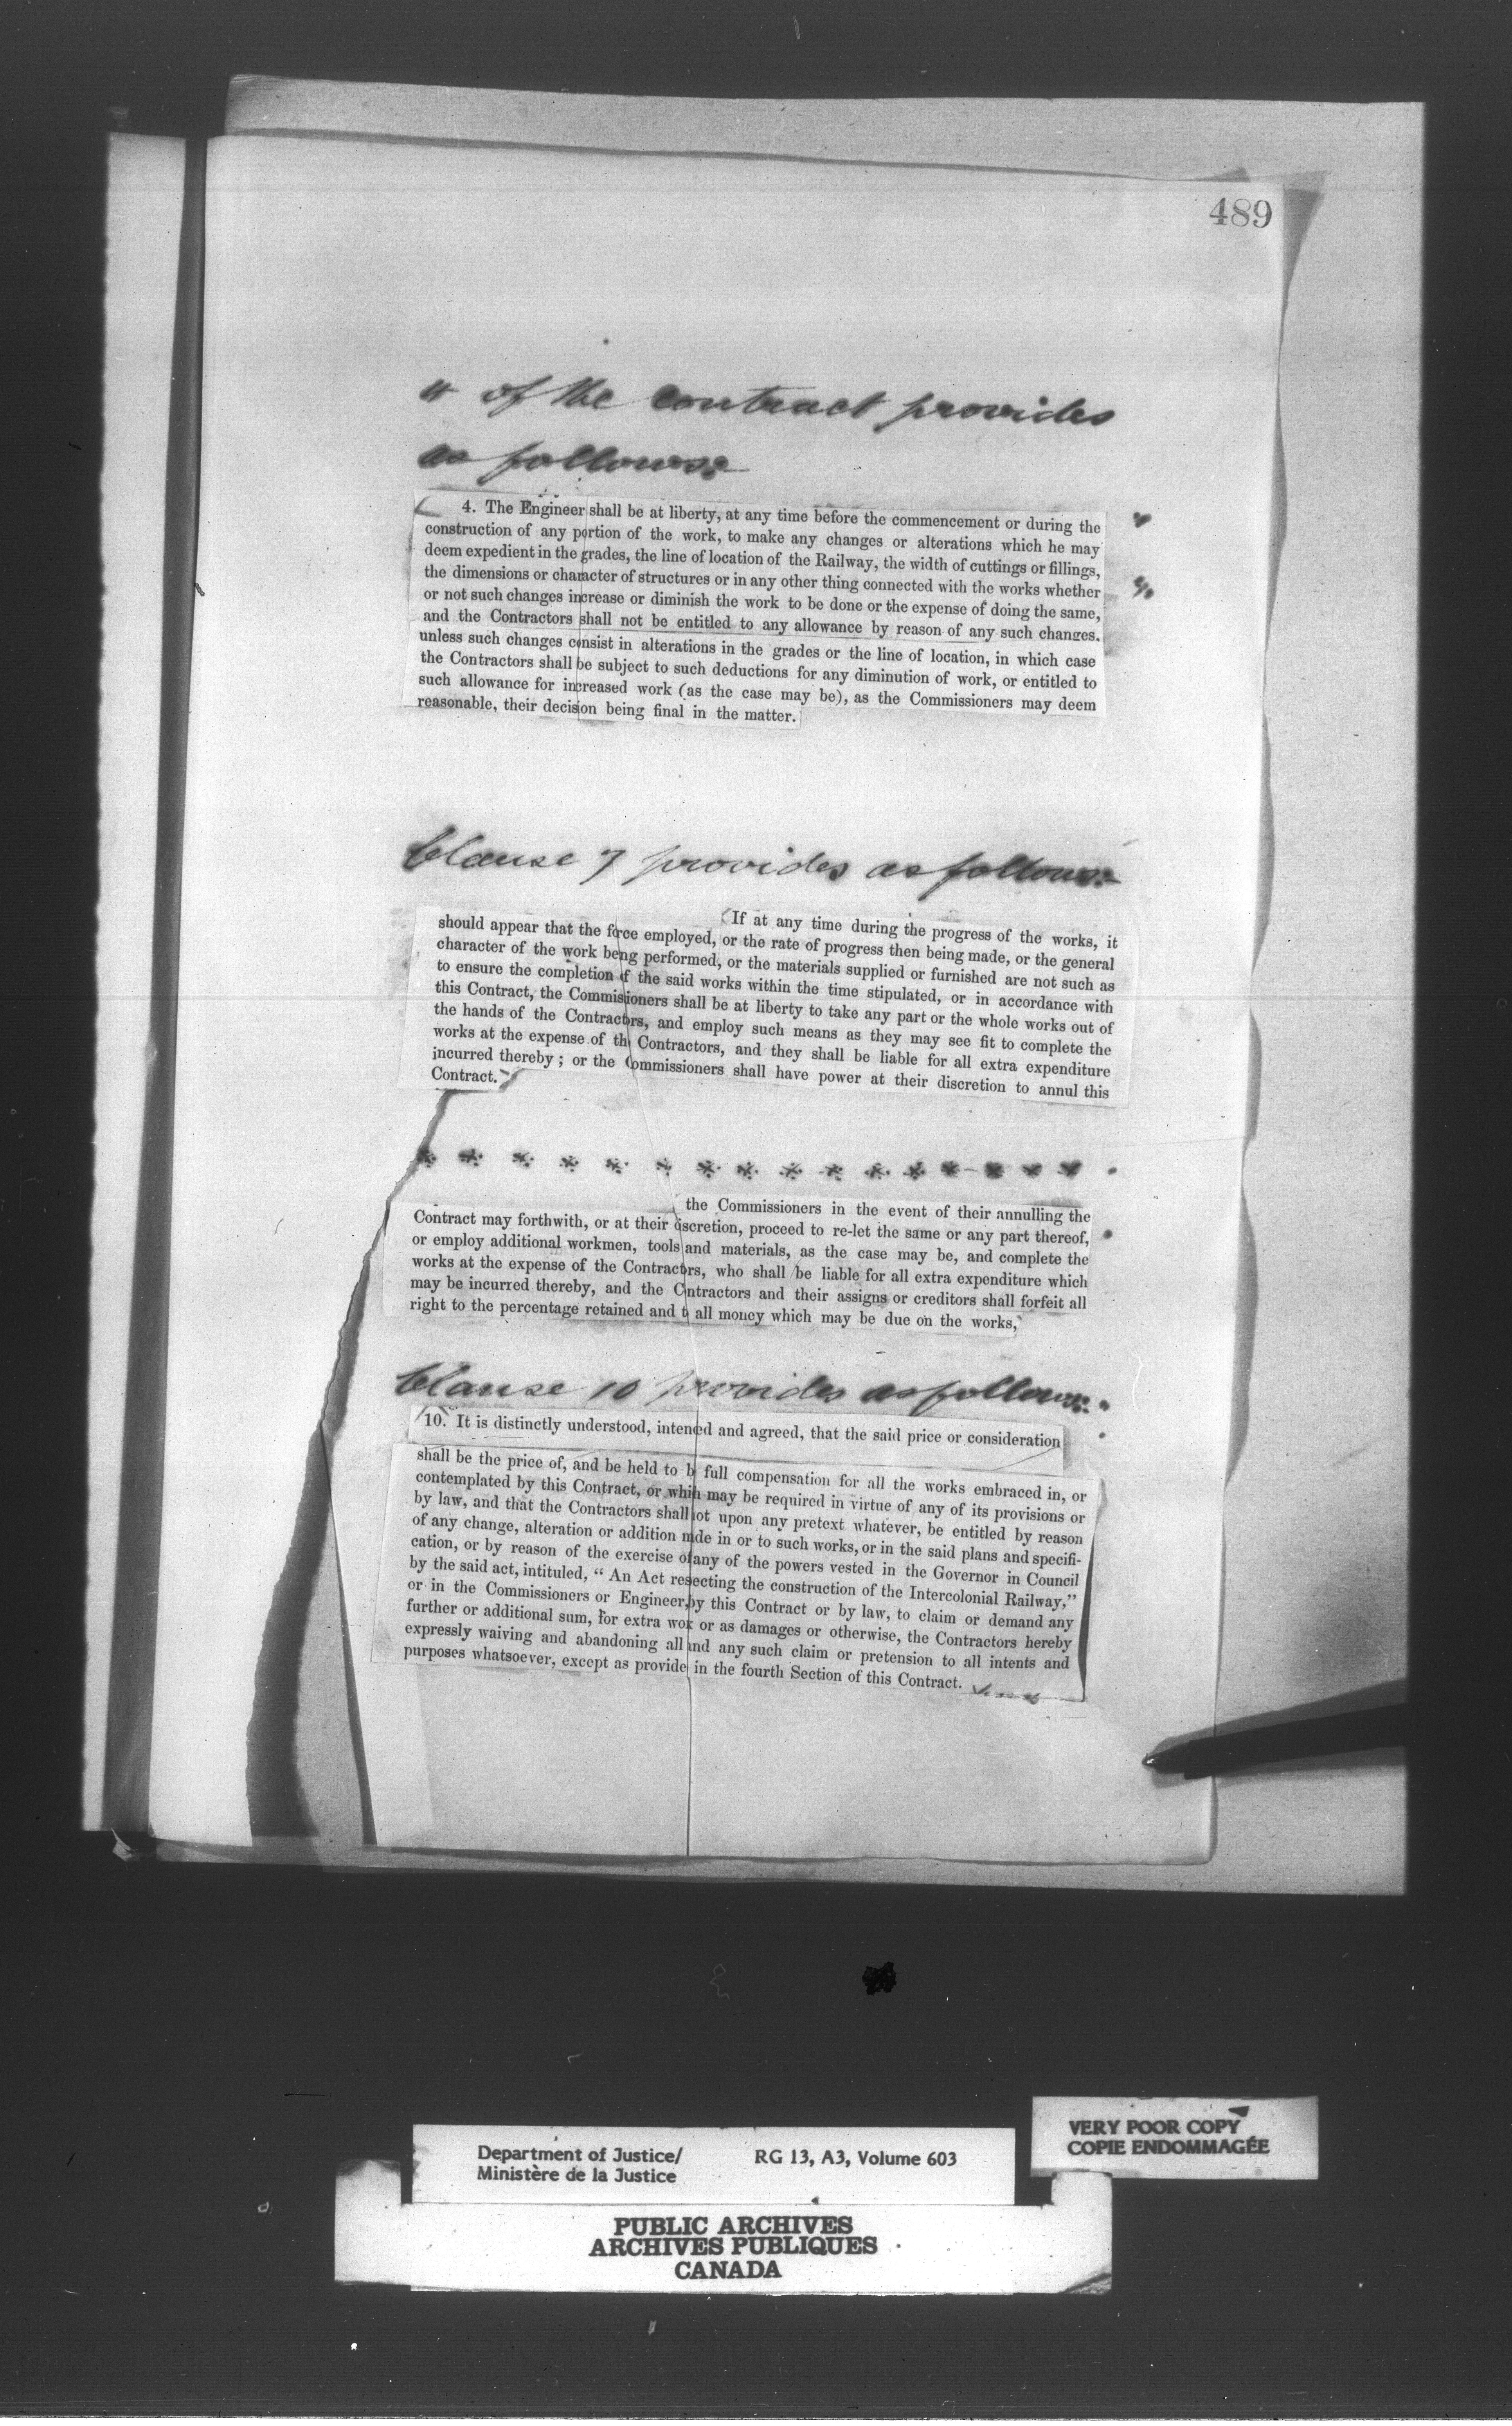 489
4 of the contract provides
as follows:
4. The Engineer shall be at liberty, at any time before the commencement or during the
construction of any portion of the work, to make any changes or alterations which he may
deem expedient in the grades, the line of location of the Railway, the width of cuttings or fillings,
the dimensions or character of structures or in any other thing connected with the works whether
or not such changes increase or diminish the work to be done or the expense of doing the same,
and the Contractors shall not be entitled to any allowance by reason of any such changes.
unless such changes consist in alterations in the grades or the line of location, in which case
the Contractors shall be subject to such deductions for any diminution of work, or entitled to
such allowance for increased work (as the case may be), as the Commissioners may deem
reasonable, their decision being final in the matter.
Clause 7 provides as follows:
If at any time during the progress of the works, it
should appear that the force employed, or the rate of progress then being made, or the general
character of the work beng performed, or the materials supplied or furnished are not such as
to ensure the completion f the said works within the time stipulated, or in accordance with
this Contract, the Commissioners shall be at liberty to take any part or the whole works out of
the hands of the Contractrs, and employ such means as they may see fit to complete the
works at the expense of th Contractors, and they shall be liable for all extra expenditure
incurred thereby; or the Commissioners shall have power at their discretion to annul this
Contract.
* * * * * * * * * * * * * * * *
the Commissioners in the event of their annulling the
Contract may forthwith, or at their discretion, proceed to re-let the same or any part thereof,
or employ additional workmen, tools and materials, as the case may be, and complete the
works at the expense of the Contractrs, who shall be liable for all extra expenditure which
may be incurred thereby, and the Cntractors and their assigns or creditors shall forfeit all
right to the percentage retained and t all money which may be due on the works,
Clause 10 provides as follows:
10. It is distinctly understood, intened and agreed, that the said price or consideration
shall be the price of, and be held to b full compensation for all the works embraced in, or
contemplated by this Contract, or whih may be required in virtue of any of its provisions or
by law, and that the Contractors shall ot upon any pretext whatever, be entitled by reason
of any change, alteration or addition mde in or to such works, or in the said plans and specifi-
cation, or by reason of the exercise of any of the powers vested in the Governor in Council
by the said act, intituled, “ An Act resecting the construction of the Intercolonial Railway,”
or in the Commissioners or Engineer, by this Contract or by law, to claim or demand any
further or additional sum, for extra wok or as damages or otherwise, the Contractors hereby
expressly waiving and abandoning all and any such claim or pretension to all intents and
purposes whatsoever, except as provide in the fourth Section of this Contract.
VERY POOR COPY
COPIE ENDOMMAGÉE
Department of Justice/ RG 13, A3, Volume 603
Ministère de la Justice
PUBLIC ARCHIVES
ARCHIVES PUBLIQUES
CANADA